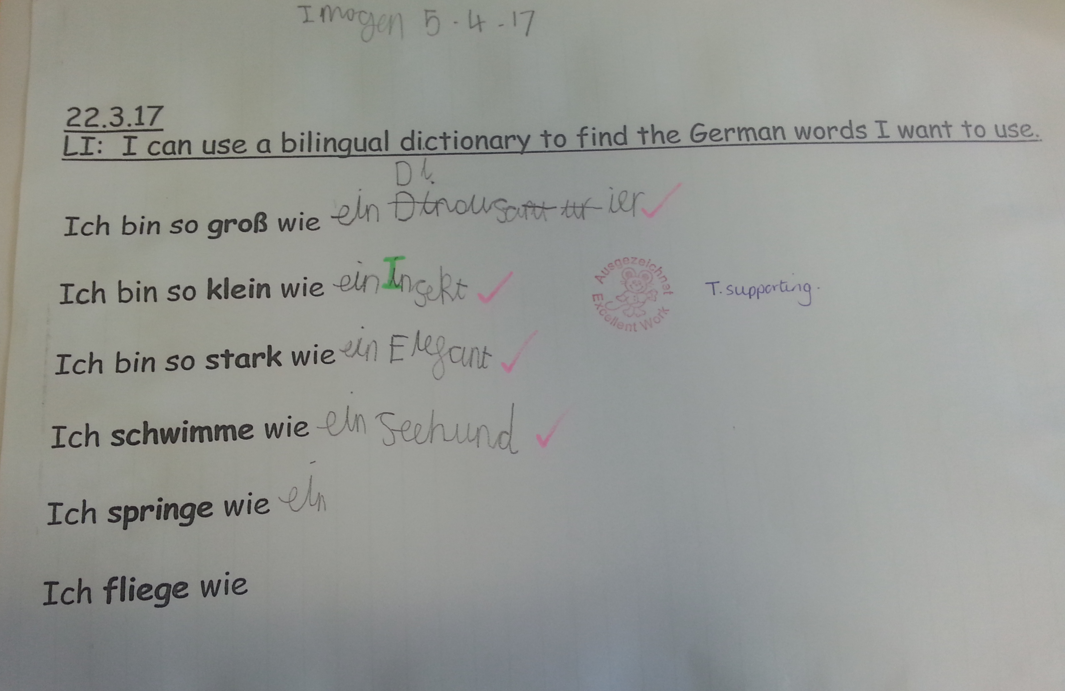 Imogen 5.4.17
22.3.17
LI: I can use a bilingual dictionary to find the German words I want to use.
Di
Ich bin so groß wie ein ier
Ich bin so klein wie ein Insekt
Ausgezeichnet
Excellent Work
T. supporting.
Ich bin so stark wie ein Elefant
Ich schwimme wie ein Seehund
Ich springe wie ein
Ich fliege wie